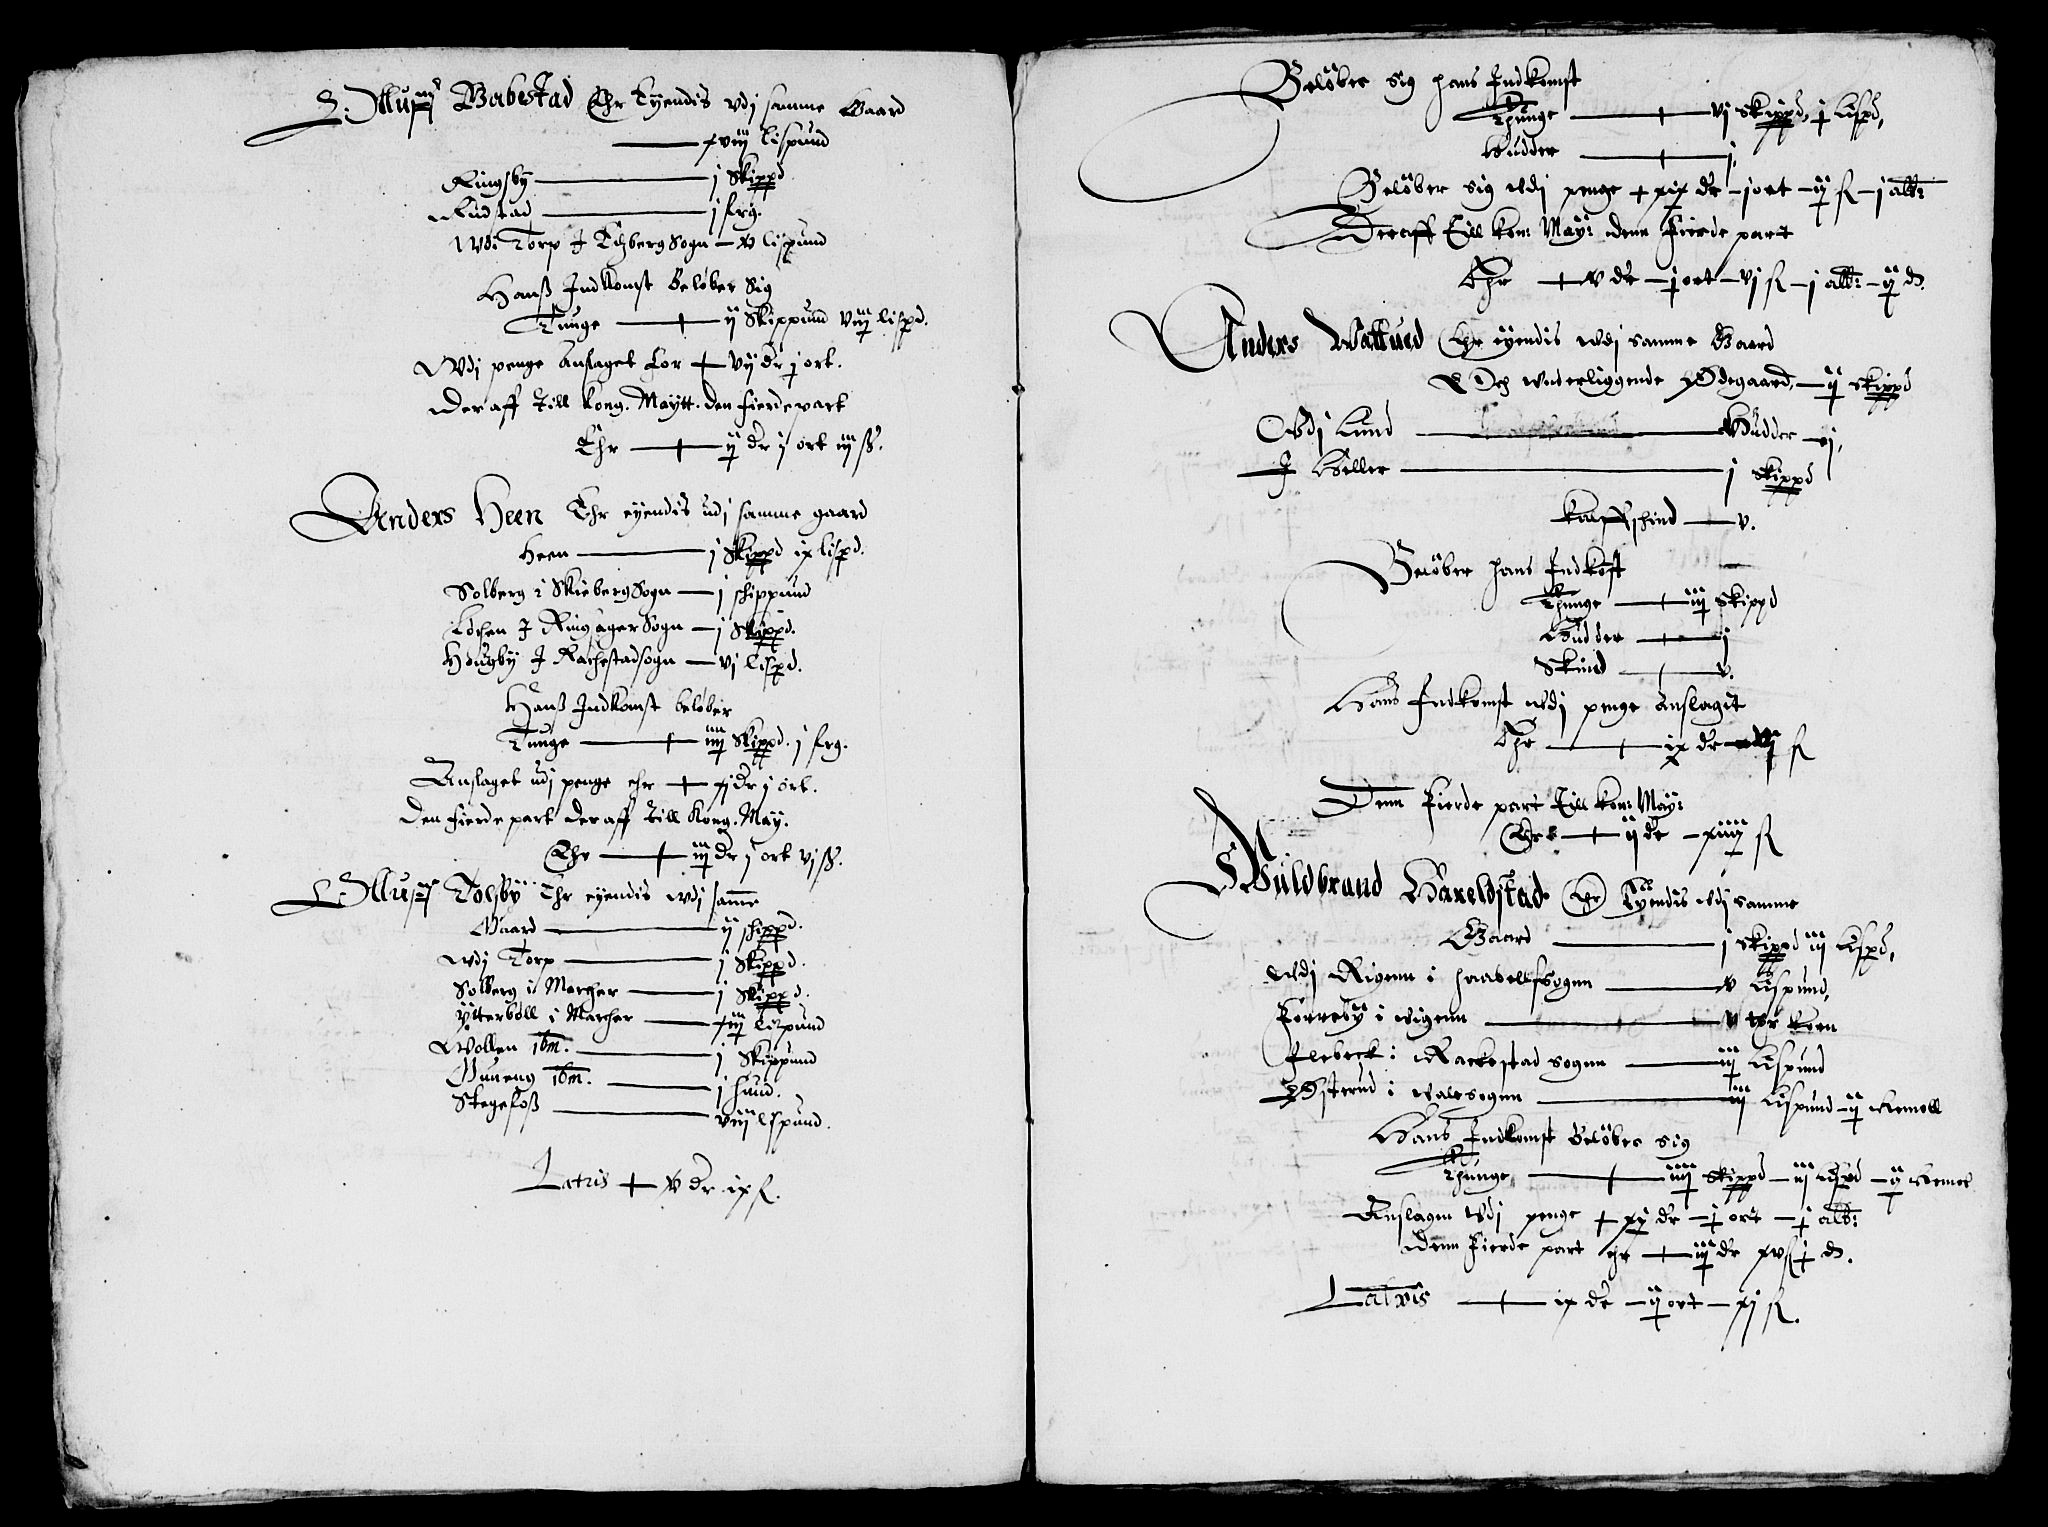 Olluff Babestad Ehr Eyendis Udj samme Gaard
xviij lispund
Ringsby — j Skippd
Rudstad — j frg.
Udi Torp J Edzberg Sogn — v lispund
Hanß Indkomst Beløber Sig
Tunge — ij Skippund viij lispd.
Udj penge Anslaget Eor — vij dr j ort.
Der aff till kong. Maytt. den fierdepart
Ehr — ij dr j ort iij ß.
Anders Heen Ehr eyendis udj samme gaard
Heen — j Skippd ix lispd.
Solberg i SkiebergSogn — j schippund
J RingsagerSogn — j Skippd.
Hougby J Rachestadsogn — vj lispd.
Hanß Indkomst beløber
Tunge — iiij Skippd. j frg.
Anslaget udj penge ehr — xj dr j ort.
Den fierde part der aff till Kong. May.
Ehr — iij dr j ort vj ß.
Olluff Tolsby Ehr eyendis udj samme
Gaard — ij schippd.
Udj Torp — j Skippd.
Solberg i Marcher — j Skippd.
Ytterbøll i Marcher — xiij lispund
Wollen ibm. — j Skippund
Buueng ibm. — j hund.
Stegefoß — viij lispund.
Latris — v dr ix ß.
Beløber sig hans Indkomst
Thunge — vj Skippd, j Lispd,
Hudder — j,
Beløber sig udj penge — xix dr — j ort — ij ß — j alb:
Deraff Till kon: May: denn Fierde part
Ehr — v dr — j ort — vj ß — j alb: — ij d.
Anders Ehr eyendis udj samme Gaard
Och underliggende Ødegaard, — ij Skippd
Udj Lund — Hudder — j,
J Heller — j Skippd
Kalffskind — v.
Beløber hans Indkomst
Thunge — iij Skippd
Hudder — j
Skind — v.
Hans Indkomst udj penge Anslagit
Ehr — ix dr ß
Denn Fierde part Till kon: May:
Ehr — ij dr — xiiij ß
Guldbrand Hareldstad Ehr Eyendis udj samme
Gaard — j Skippd iij Lispd,
Udj Rigenn i haabellsogenn — v Lispund,
Torreby i vigenn — v
Flebeck i Rackestad sogenn — iij Lispund
Østerud i valersogenn — iij Lispund — ij Remoll
Hans Indkomst Beløber sig
Thunge — iiij Skippd — iij Lispd — ij Remol
Anslagen udj penge — xij dr — j ort — j alb:
Denn Fierde part ehr — iij dr xv ß j d.
Latris — ix dr — ij ort — xj ß.